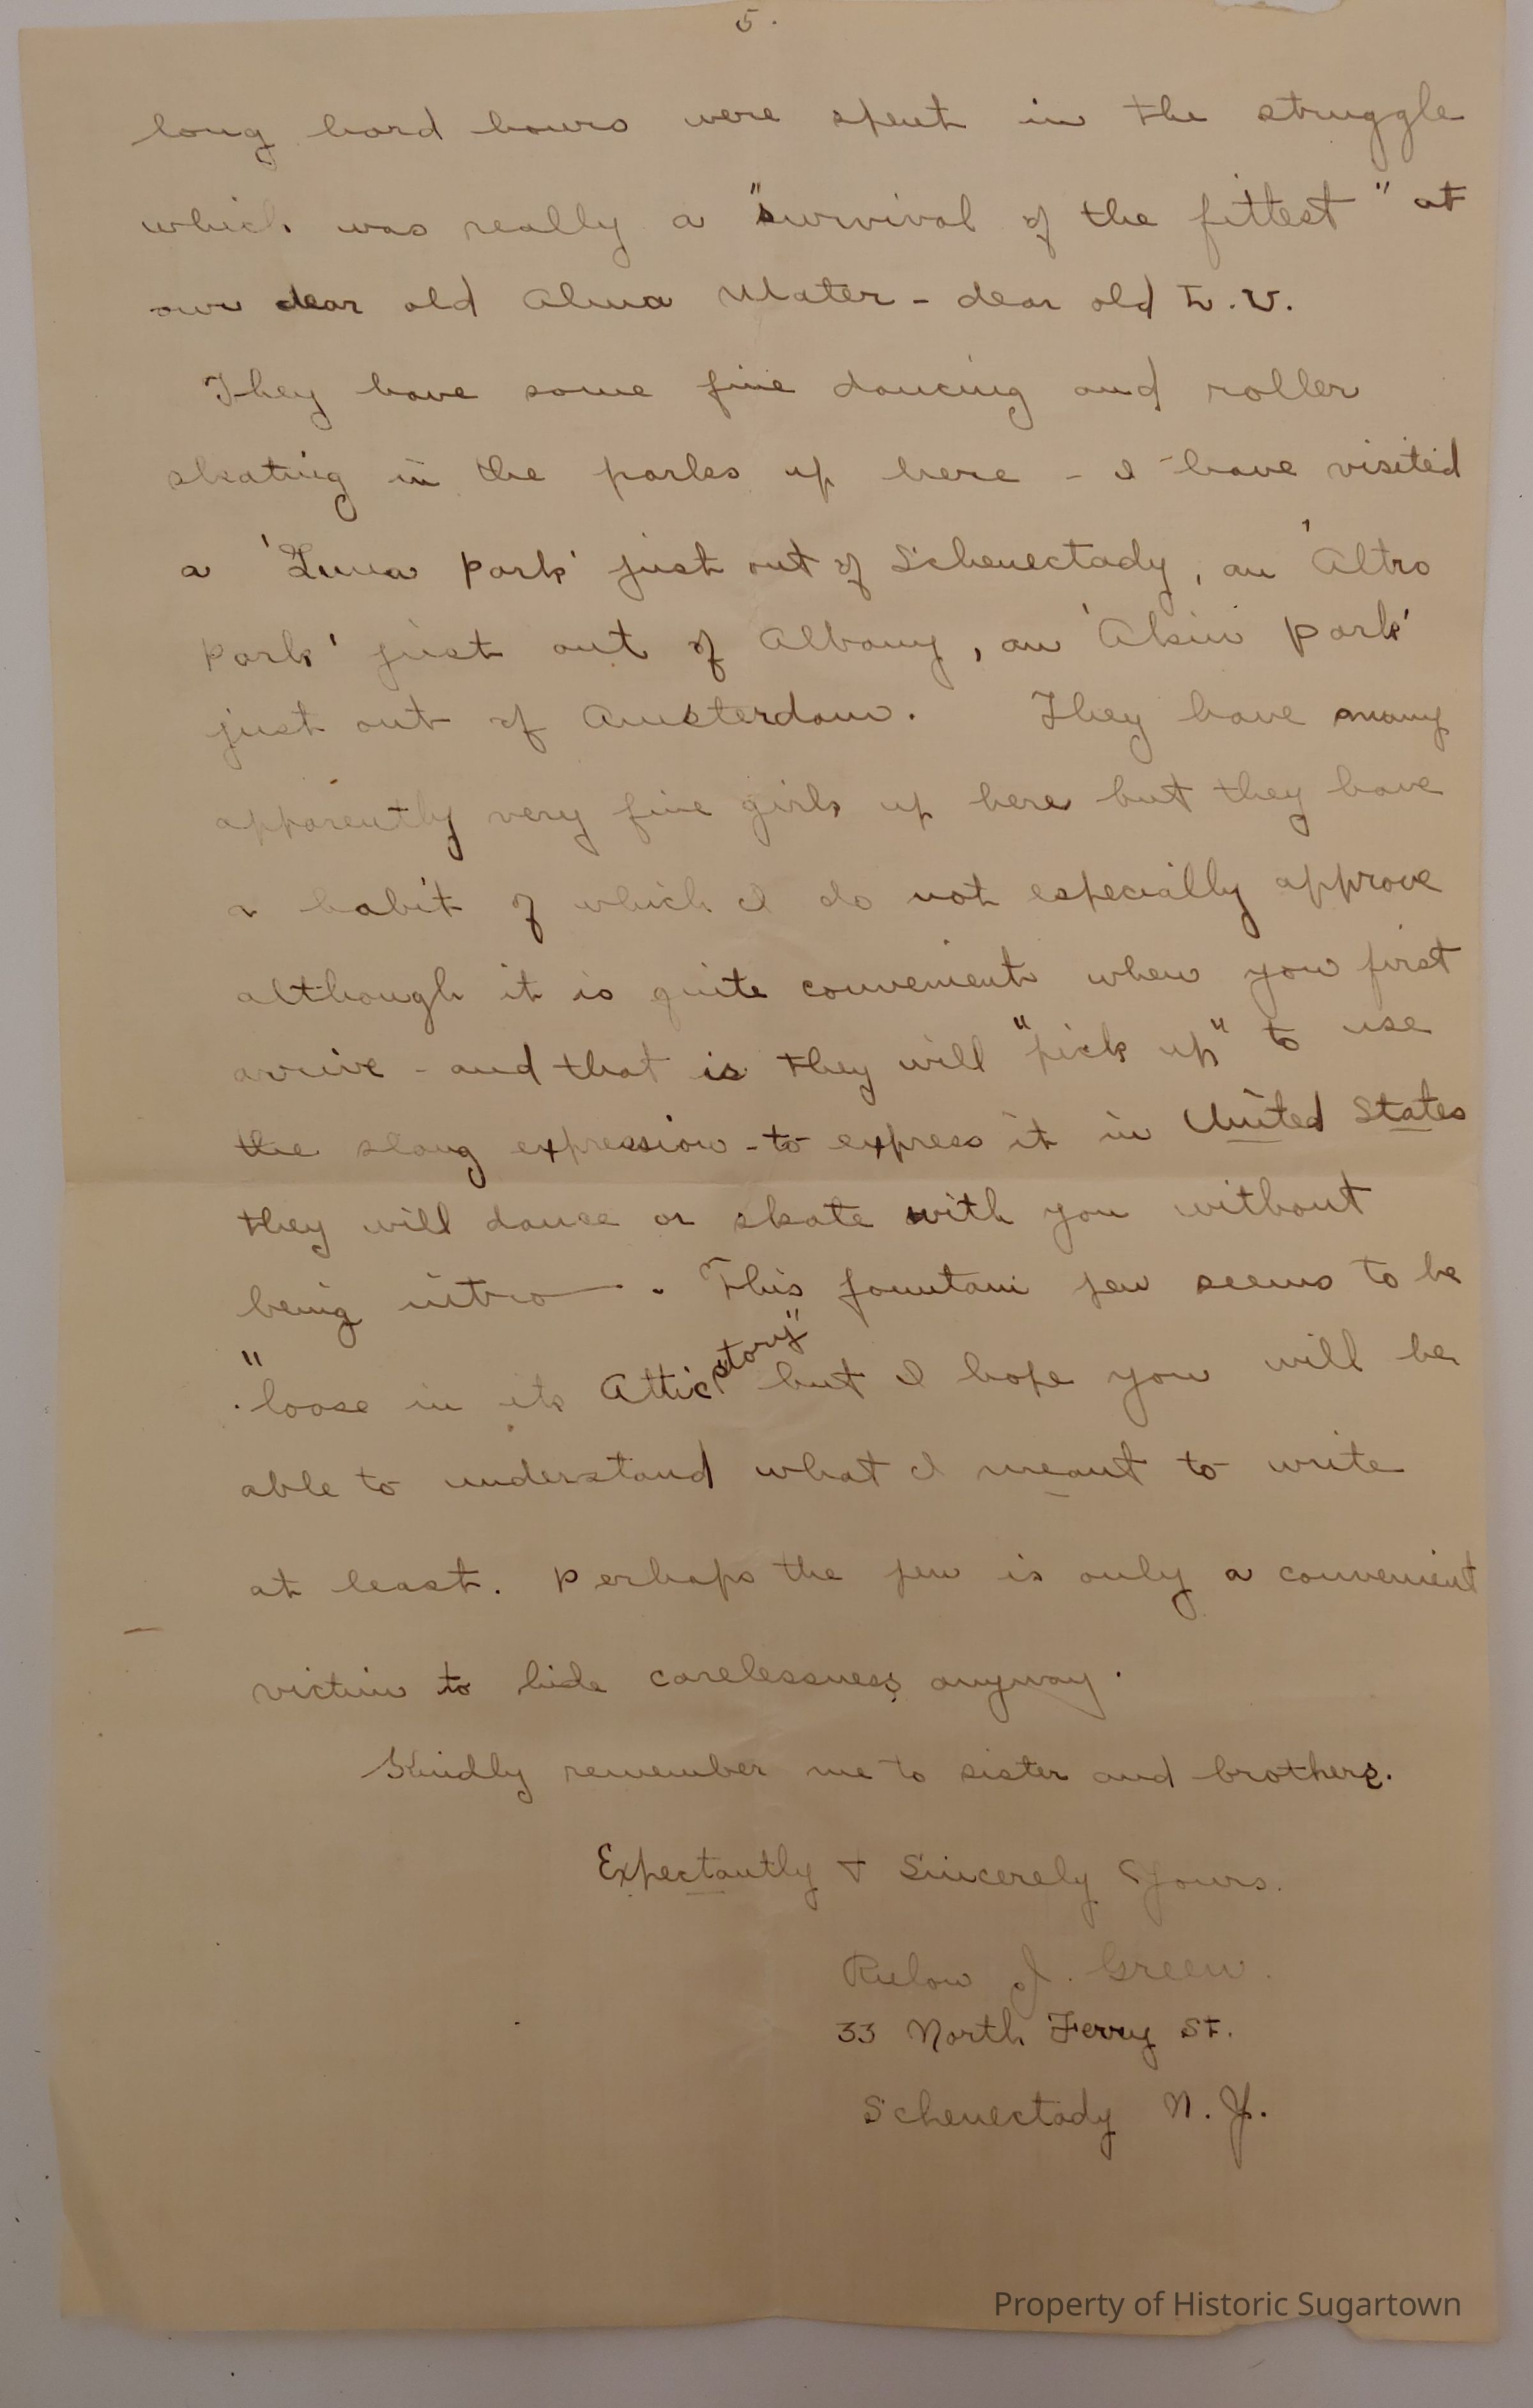 5.
long hard hours were spent in the struggle
which was really a "survival of the fittest" at
our dear old Alma Mater - dear old L.V.
They have some fine dancing and roller
skating in the parks up here - I have visited
a 'Luna Park' just out of Schenectady, an 'Altro
Park' just out of Albany, an 'Akin Park'
just out of Amsterdam. They have many
apparently very fine girls up here but they have
a habit of which I do not especially approve
although it is quite convenient when you first
arrive - and that is they will "pick up" to use
the slang expression - to express it in United States
they will dance or skate with you without
being intro—. This fountain pen seems to be
"loose in its Attic story" but I hope you will be
able to understand what I meant to write
at least. Perhaps the pen is only a convenient
victim to hide carelessness anyway.
Kindly remember me to sister and brothers.
Expectantly + Sincerely Yours.
Rulow J. Green.
33 North Ferry St.
Schenectady N.Y.
Property of Historic Sugartown